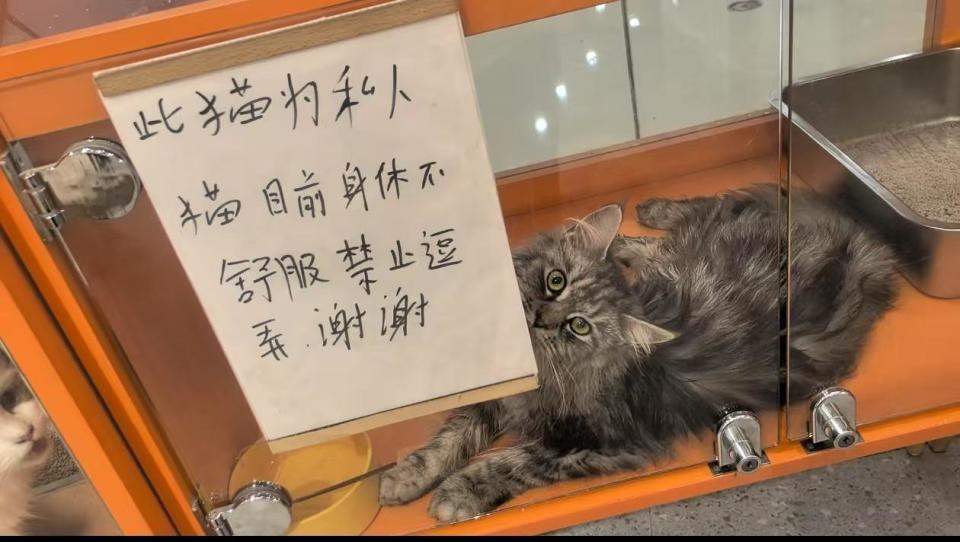 此猫为私人
猫目前身体不
舒服禁止逗
弄.谢谢